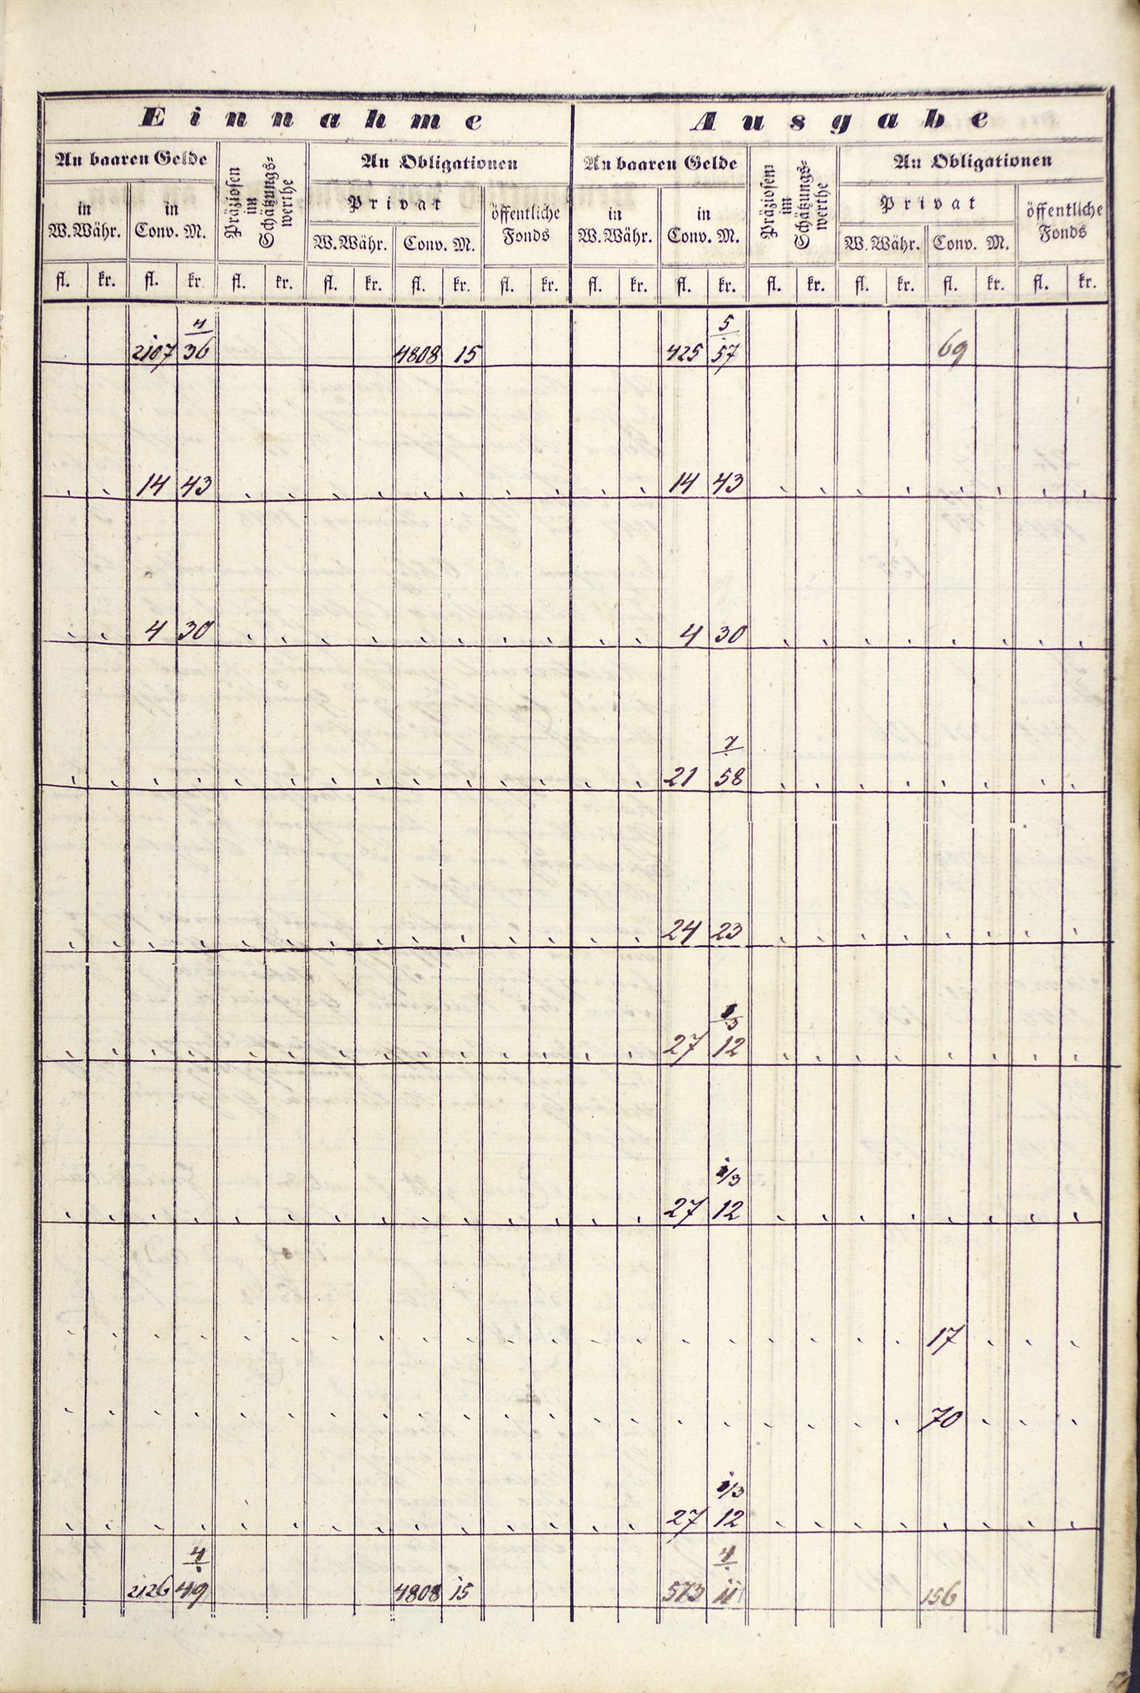 Einnahme Ausgabe
An baaren Gelde Präziosen im Schätzungs-werthe An Obligationen An baaren Gelde Präziosen im Schätzungs-werthe An Obligationen
in W.Währ. in Conv. M. Privat öffentliche Fonds in W.Währ. in Conv. M. Privat öffentliche Fonds
W.Währ. Conv. M. W.Währ. Conv. M.
fl. kr. fl. kr fl. kr. fl. kr. fl. kr. fl. kr. fl. kr. fl. kr. fl. kr. fl. kr. fl. kr. fl. kr.
4 5
2107 36 4808 15 425 57 69
14 43 14 43
4 30 4 30
7
21 58
24 23
1/3
27 12
1/3
27 12
17
70
1/3
27 12
4 4
2126 49 4808 15 573 11 156